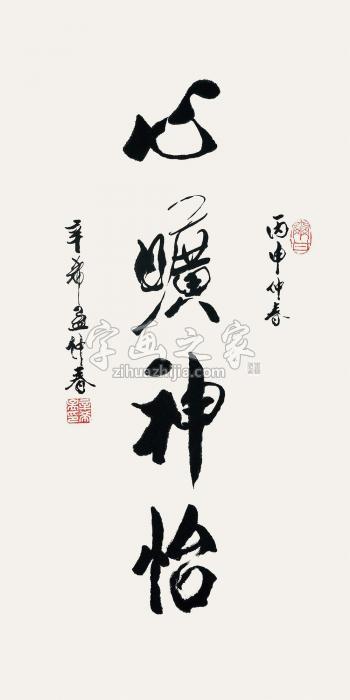 丙申仲春
心曠神怡
辛希孟仲春
字画之家
zihuazhijia.com